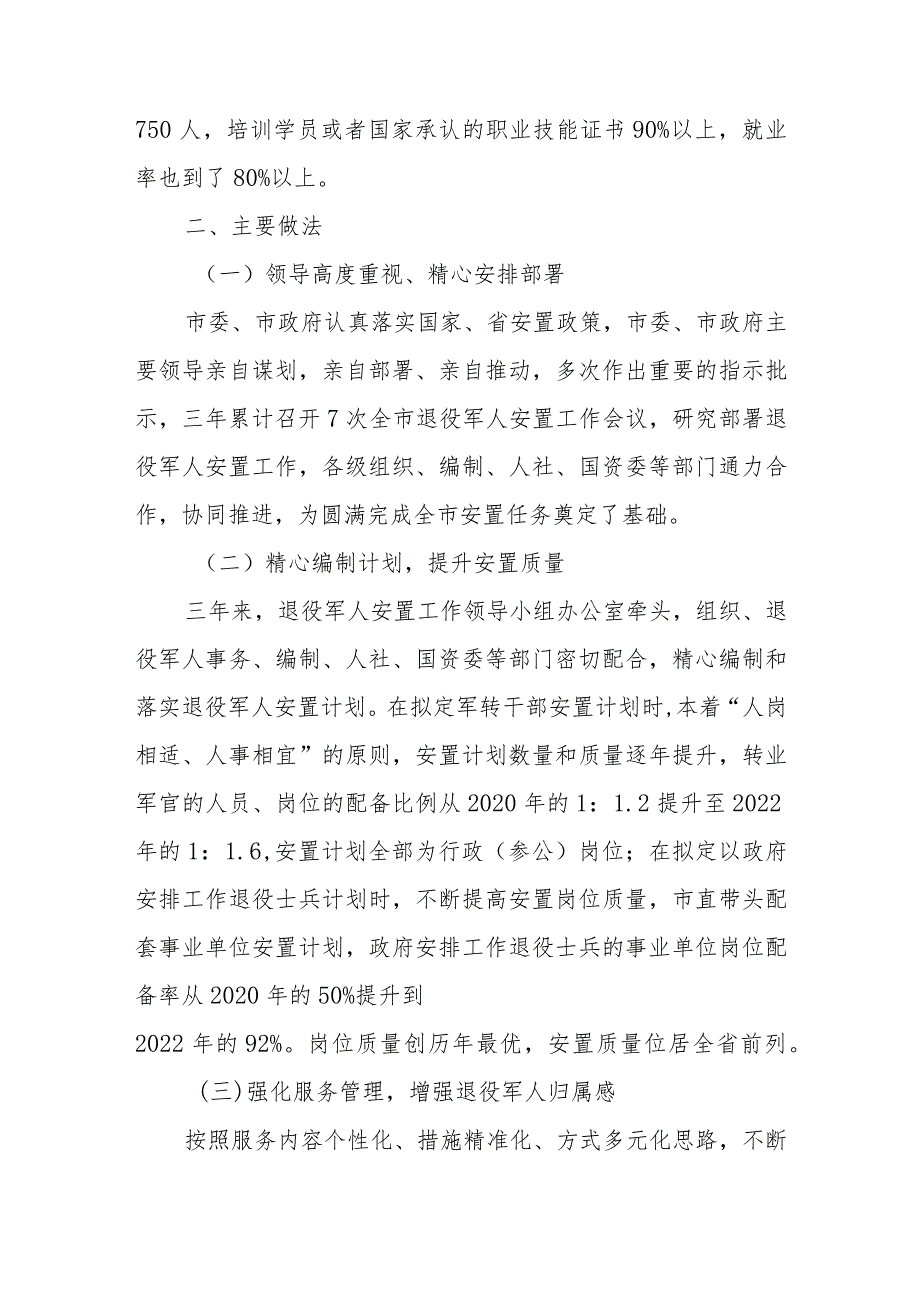 750 人，培训学员或者国家承认的职业技能证书 90%以上，就业
率也到了 80%以上。
二、主要做法
（一）领导高度重视、精心安排部署
市委、市政府认真落实国家、省安置政策，市委、市政府主
要领导亲自谋划，亲自部署、亲自推动，多次作出重要的指示批
示，三年累计召开 7 次全市退役军人安置工作会议，研究部署退
役军人安置工作，各级组织、编制、人社、国资委等部门通力合
作，协同推进，为圆满完成全市安置任务奠定了基础。
（二）精心编制计划，提升安置质量
三年来，退役军人安置工作领导小组办公室牵头，组织、退
役军人事务、编制、人社、国资委等部门密切配合，精心编制和
落实退役军人安置计划。在拟定军转干部安置计划时,本着“人岗
相适、人事相宜”的原则，安置计划数量和质量逐年提升，转业
军官的人员、岗位的配备比例从 2020 年的 1：1.2 提升至 2022
年的 1：1.6,安置计划全部为行政（参公）岗位；在拟定以政府
安排工作退役士兵计划时，不断提高安置岗位质量，市直带头配
套事业单位安置计划，政府安排工作退役士兵的事业单位岗位配
备率从 2020 年的 50%提升到
2022 年的 92%。岗位质量创历年最优，安置质量位居全省前列。
(三)强化服务管理，增强退役军人归属感
按照服务内容个性化、措施精准化、方式多元化思路，不断